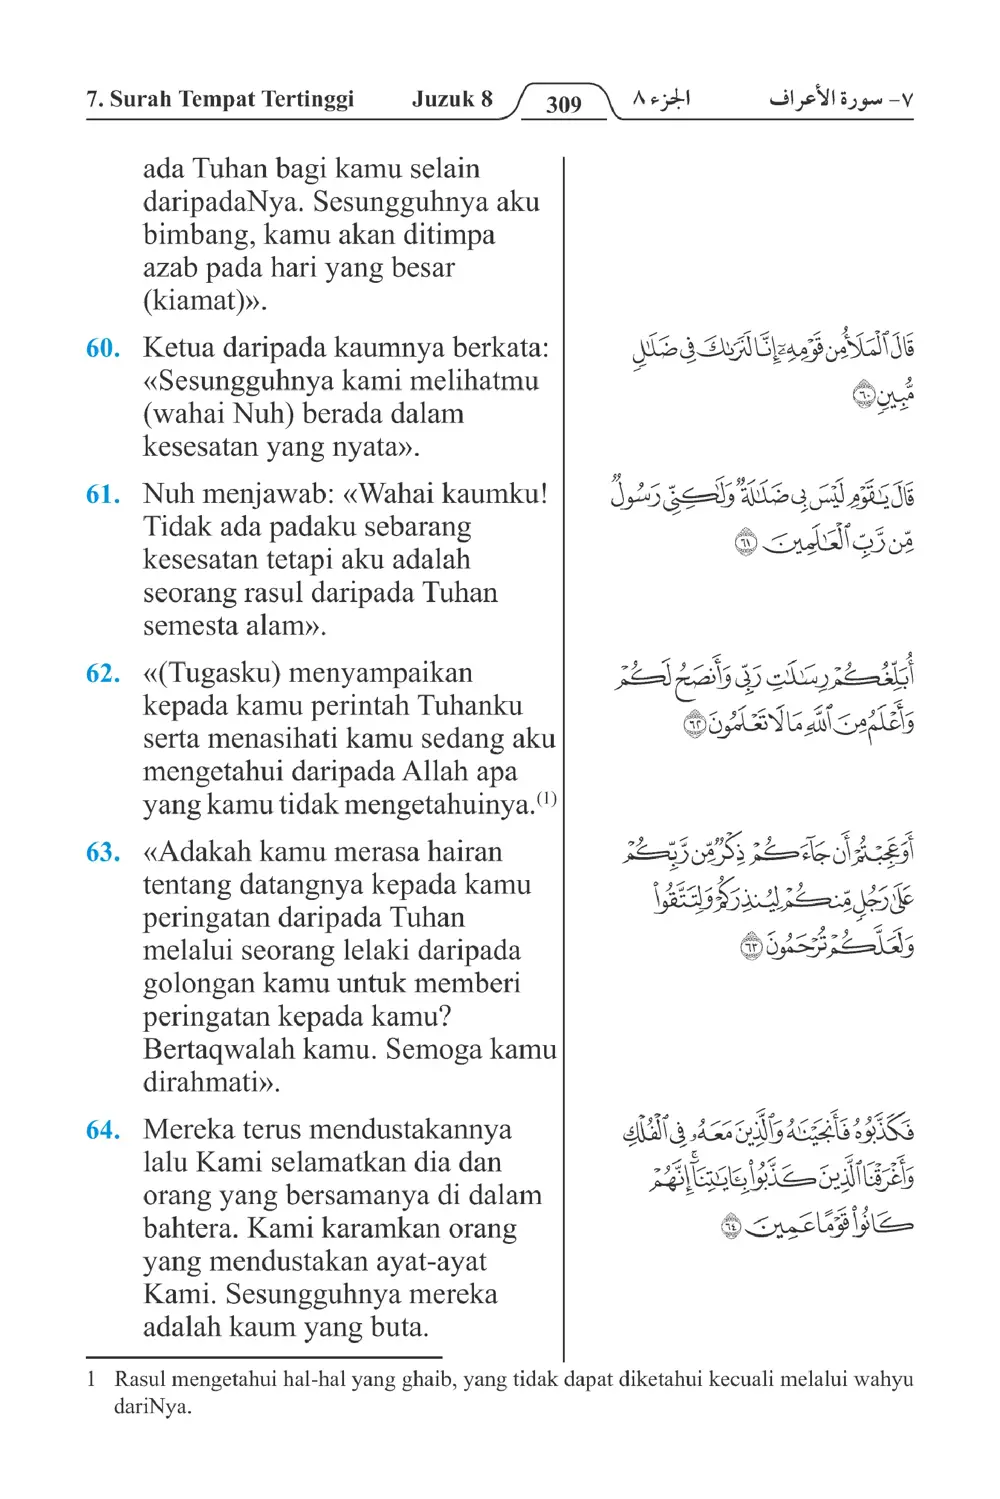 7. Surah Tempat Tertinggi Juzuk 8 309 الجزء ٨ ٧- سورة الأعراف
ada Tuhan bagi kamu selain
daripadaNya. Sesungguhnya aku
bimbang, kamu akan ditimpa
azab pada hari yang besar
(kiamat)».
60. Ketua daripada kaumnya berkata:
«Sesungguhnya kami melihatmu
(wahai Nuh) berada dalam
kesesatan yang nyata».
قَالَ ٱلْمَلَأُ مِن قَوْمِهِۦٓ إِنَّا لَنَرَىٰكَ فِى ضَلَٰلٍ
مُّبِينٍ ٦٠
61. Nuh menjawab: «Wahai kaumku!
Tidak ada padaku sebarang
kesesatan tetapi aku adalah
seorang rasul daripada Tuhan
semesta alam».
قَالَ يَٰقَوْمِ لَيْسَ بِى ضَلَٰلَةٌ وَلَٰكِنِّى رَسُولٌ
مِّن رَّبِّ ٱلْعَٰلَمِينَ ٦١
62. «(Tugasku) menyampaikan
kepada kamu perintah Tuhanku
serta menasihati kamu sedang aku
mengetahui daripada Allah apa
yang kamu tidak mengetahuinya.(1)
أُبَلِّغُكُمْ رِسَٰلَٰتِ رَبِّى وَأَنصَحُ لَكُمْ
وَأَعْلَمُ مِنَ ٱللَّهِ مَا لَا تَعْلَمُونَ ٦٢
63. «Adakah kamu merasa hairan
tentang datangnya kepada kamu
peringatan daripada Tuhan
melalui seorang lelaki daripada
golongan kamu untuk memberi
peringatan kepada kamu?
Bertaqwalah kamu. Semoga kamu
dirahmati».
أَوَعَجِبْتُمْ أَن جَآءَكُمْ ذِكْرٌ مِّن رَّبِّكُمْ
عَلَىٰ رَجُلٍ مِّنكُمْ لِيُنذِرَكُمْ وَلِتَتَّقُوا۟
وَلَعَلَّكُمْ تُرْحَمُونَ ٦٣
64. Mereka terus mendustakannya
lalu Kami selamatkan dia dan
orang yang bersamanya di dalam
bahtera. Kami karamkan orang
yang mendustakan ayat-ayat
Kami. Sesungguhnya mereka
adalah kaum yang buta.
فَكَذَّبُوهُ فَأَنجَيْنَٰهُ وَٱلَّذِينَ مَعَهُۥ فِى ٱلْفُلْكِ
وَأَغْرَقْنَا ٱلَّذِينَ كَذَّبُوا۟ بِـَٔايَٰتِنَآ ۚ إِنَّهُمْ
كَانُوا۟ قَوْمًا عَمِينَ ٦٤
1 Rasul mengetahui hal-hal yang ghaib, yang tidak dapat diketahui kecuali melalui wahyu
dariNya.